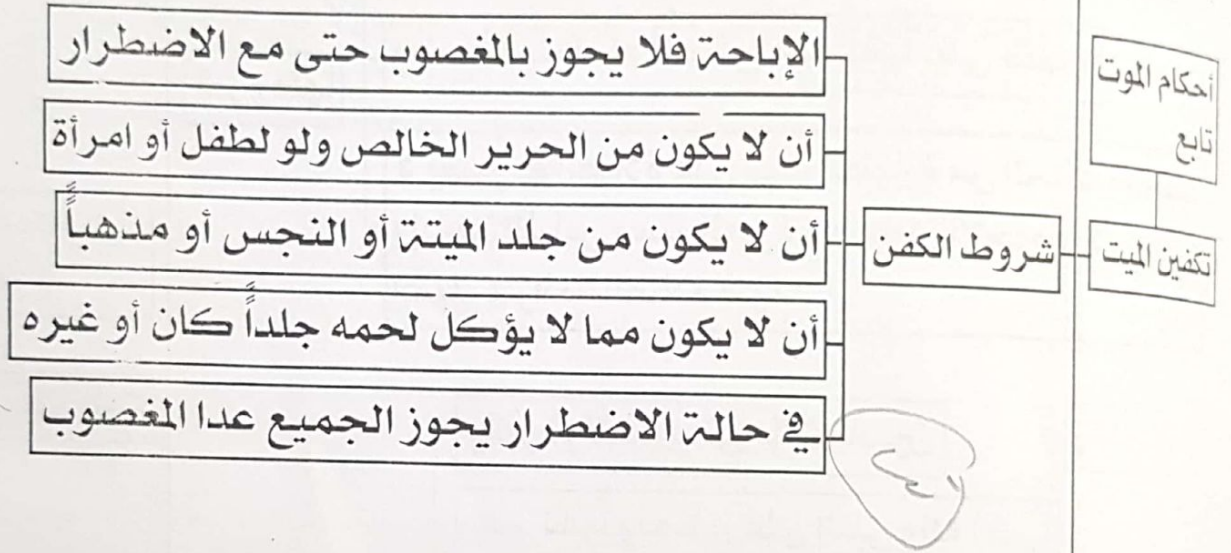 أحكام الموت
تابع
تكفين الميت
شروط الكفن
الإباحة فلا يجوز بالمغصوب حتى مع الاضطرار
أن لا يكون من الحرير الخالص ولو لطفل أو امرأة
أن لا يكون من جلد الميتة أو النجس أو مذهباً
أن لا يكون مما لا يؤكل لحمه جلداً كان أو غيره
في حالة الاضطرار يجوز الجميع عدا المغصوب